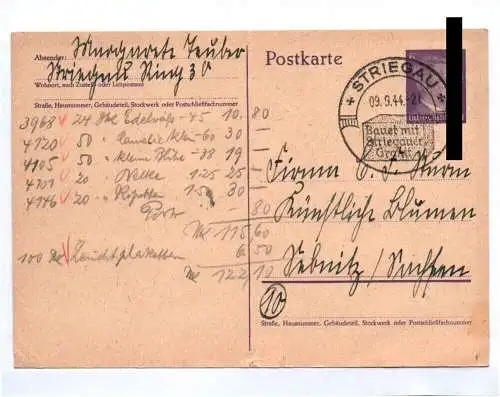 Absender: Margarete Teuber
Striegau Ring 30
Wohnort, auch Zustell- oder Leitpostamt
Straße, Hausnummer, Gebäudeteil, Stockwerk oder Postschließfachnummer
Postkarte
STRIEGAU
09.9.44.-21
Bauet mit
Striegauer
Granit
3968 24 Edelweiß -45 10.80
4720 50 -60 30 -
4105 50 kleine -38 19
20 Nelke 1.25 25 -
4146 20 " 1.50 30 -
Porto - 80
M 115 60
100 Leuchtplaketten 6.50
M 122.10
Firma C. H. Sturm
Künstliche Blumen
Sebnitz / Sachsen
10
Straße, Hausnummer, Gebäudeteil, Stockwerk oder Postschließfachnummer